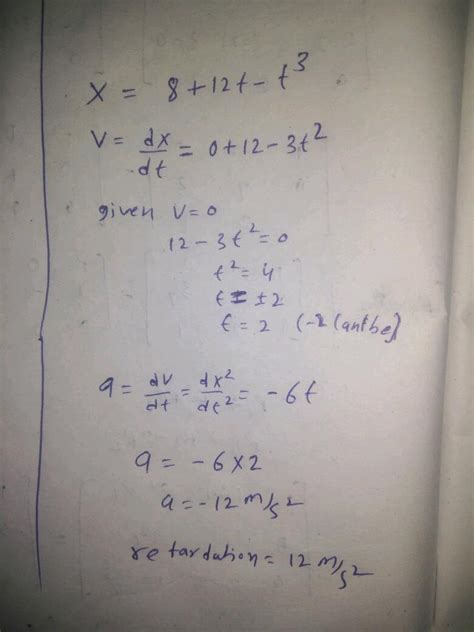 x = 8+12t-t³
v = dx/dt = 0+12-3t²
given v=0
12-3t²=0
t²=4
t = ±2
t = 2 (-2 cantbe)
a = dv/dt = dx²/dt² = -6t
a = -6×2
a = -12 m/s²
retardation = 12 m/s²